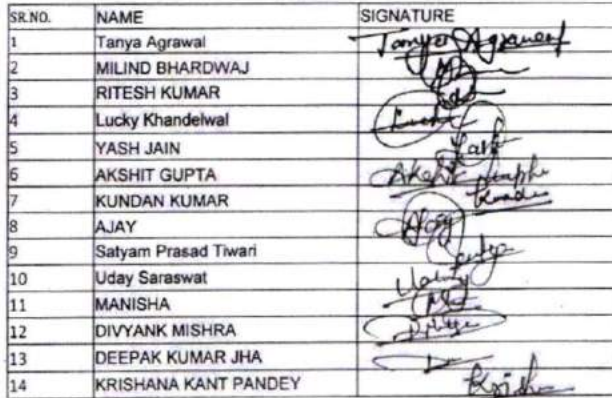 SR.NO. NAME SIGNATURE
1 Tanya Agrawal Tanya Agrawal
2 MILIND BHARDWAJ
3 RITESH KUMAR
4 Lucky Khandelwal Lucky
5 YASH JAIN Yash
6 AKSHIT GUPTA Akshit Gupta
7 KUNDAN KUMAR
8 AJAY Ajay
9 Satyam Prasad Tiwari
10 Uday Saraswat Uday
11 MANISHA
12 DIVYANK MISHRA
13 DEEPAK KUMAR JHA
14 KRISHANA KANT PANDEY Krishna